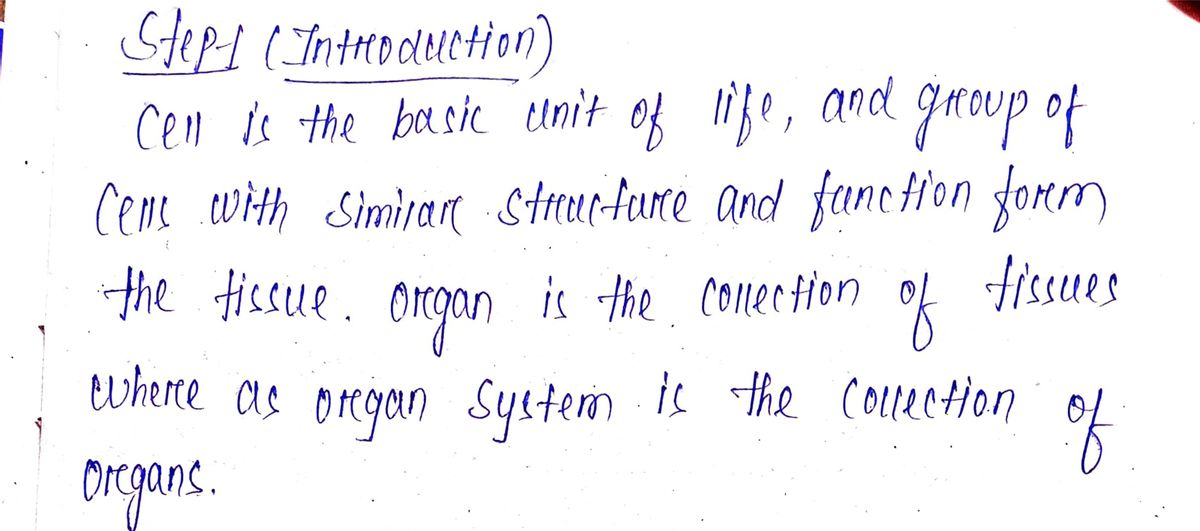 Step-1 (Introduction)
Cell is the basic unit of life, and group of
Cells with similar structure and function form
the tissue. organ is the collection of tissues
where as organ system is the collection of
organs.